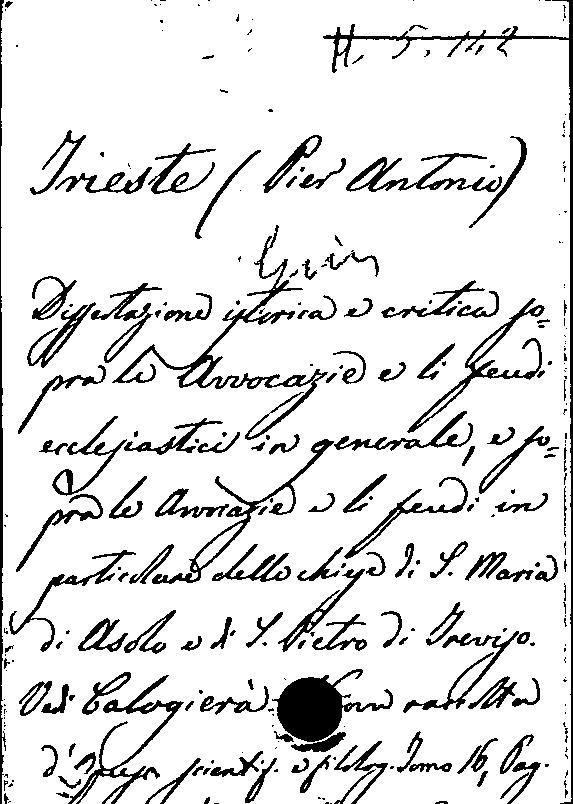 H. 5. 142
Trieste (Pier Antonio)
Dissertazione istorica e critica so=
pra le Avvocazie e li feudi
ecclesiastici in generale, e so=
pra le Avvocazie e li feudi in
particolare delle chiese di S. Maria
di Asolo e di S. Pietro di Treviso.
Vedi Calogierà Nuova raccolta
d'Opusc. scientif. e filolog. Tomo 16, Pag.